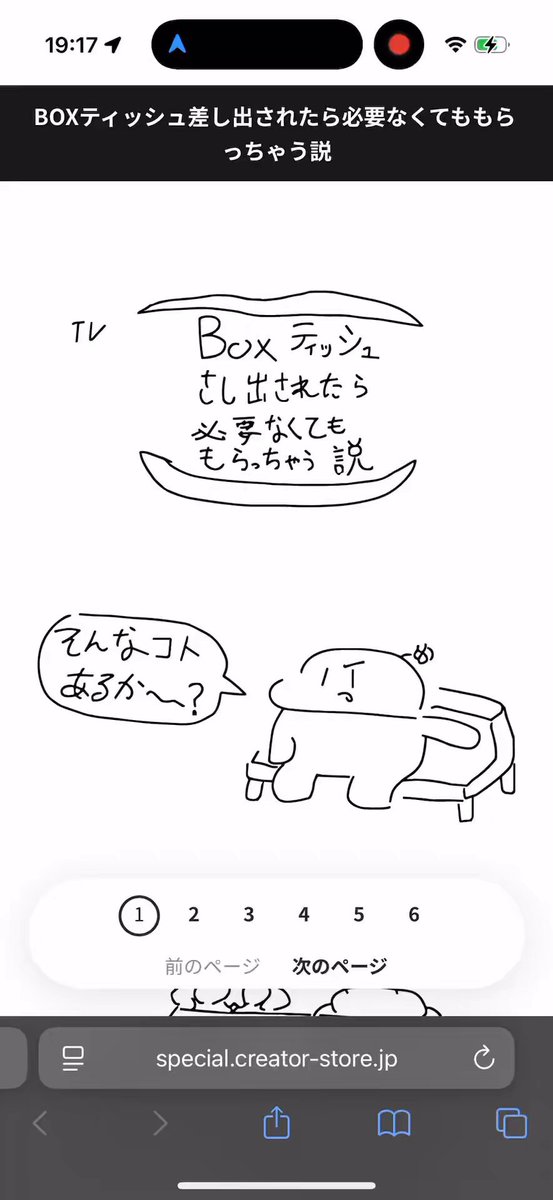 19:17
BOXティッシュ差し出されたら必要なくてももら
っちゃう説
TV
Box ティッシュ
さし出されたら
必要なくても
もらっちゃう説
そんなコト
あるか〜?
め
1 2 3 4 5 6
前のページ 次のページ
special.creator-store.jp